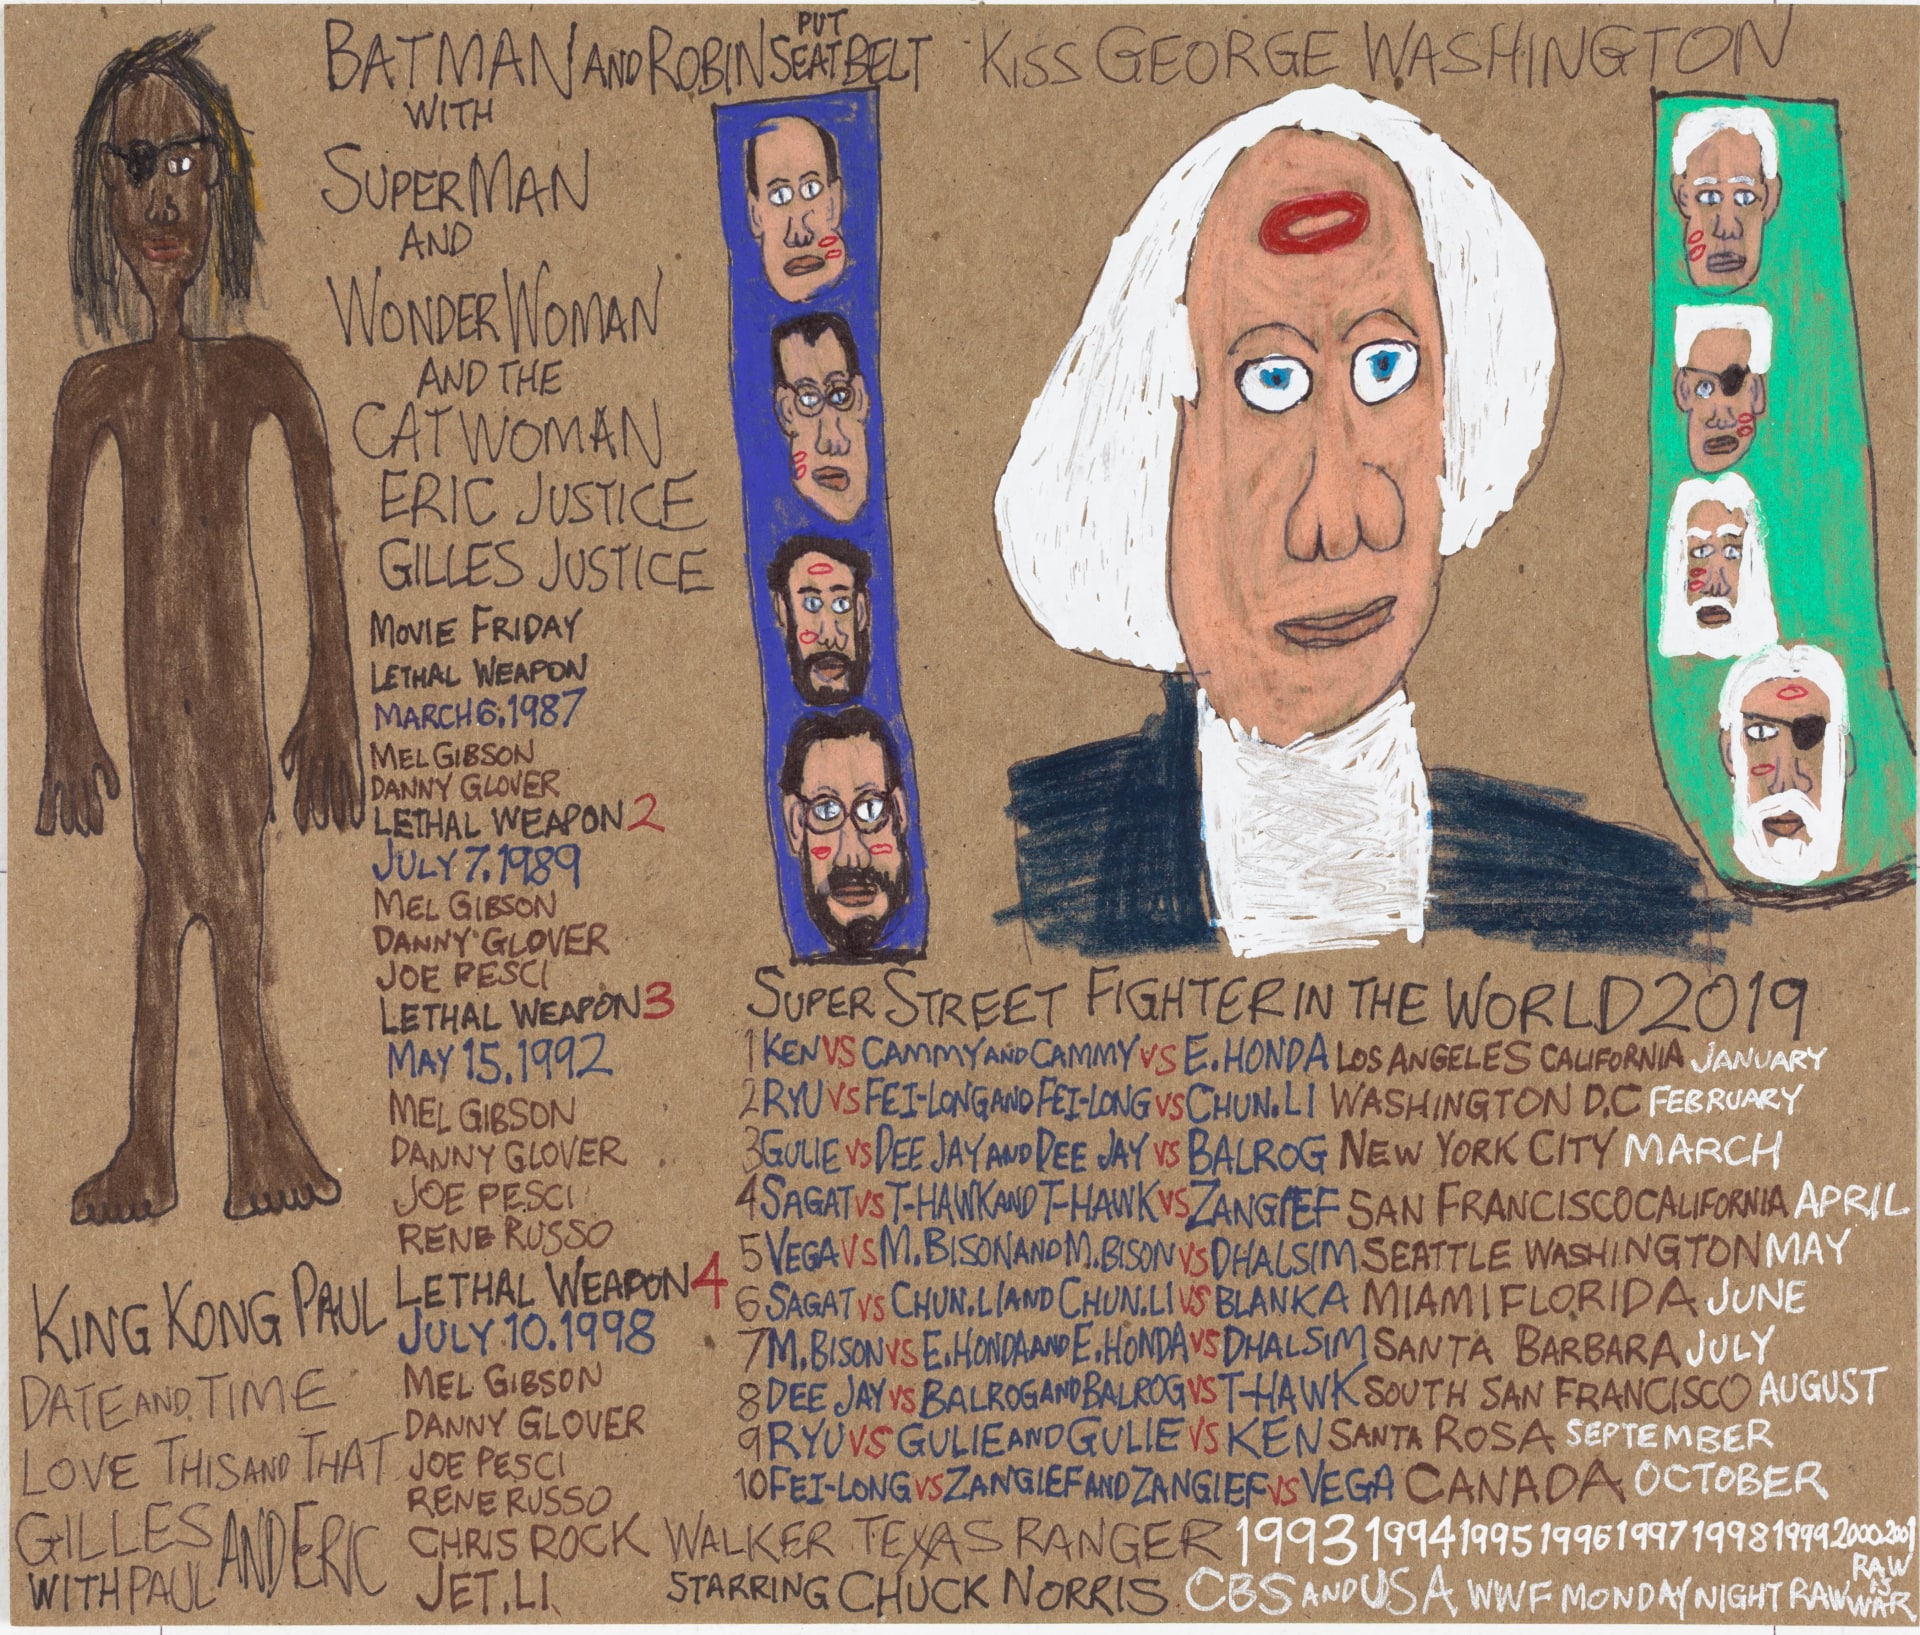 BATMAN AND ROBIN PUT SEAT BELT
WITH
SUPERMAN
AND
WONDER WOMAN
AND THE
CATWOMAN
ERIC JUSTICE
GILLES JUSTICE
MOVIE FRIDAY
LETHAL WEAPON
MARCH 6, 1987
MEL GIBSON
DANNY GLOVER
LETHAL WEAPON 2
JULY 7. 1989
MEL GIBSON
DANNY GLOVER
JOE PESCI
LETHAL WEAPON 3
MAY 15. 1992
MEL GIBSON
DANNY GLOVER
JOE PESCI
RENE RUSSO
LETHAL WEAPON 4
JULY 10. 1998
MEL GIBSON
DANNY GLOVER
JOE PESCI
RENE RUSSO
CHRIS ROCK
JET. LI.
KING KONG PAUL
DATE AND TIME
LOVE THIS AND THAT
GILLES AND ERIC
WITH PAUL
KISS GEORGE WASHINGTON
SUPER STREET FIGHTER IN THE WORLD 2019
1 KEN VS CAMMY AND CAMMY VS E. HONDA LOS ANGELES CALIFORNIA JANUARY
2 RYU VS FEI-LONG AND FEI-LONG VS CHUN.LI WASHINGTON D.C FEBRUARY
3 GULIE VS DEE JAY AND DEE JAY VS BALROG NEW YORK CITY MARCH
4 SAGAT VS T-HAWK AND T-HAWK VS ZANGIEF SAN FRANCISCO CALIFORNIA APRIL
5 VEGA VS M. BISON AND M. BISON VS DHALSIM SEATTLE WASHINGTON MAY
6 SAGAT VS CHUN.LI AND CHUN.LI VS BLANKA MIAMI FLORIDA JUNE
7 M. BISON VS E. HONDA AND E. HONDA VS DHALSIM SANTA BARBARA JULY
8 DEE JAY VS BALROG AND BALROG VS T-HAWK SOUTH SAN FRANCISCO AUGUST
9 RYU VS GULIE AND GULIE VS KEN SANTA ROSA SEPTEMBER
10 FEI-LONG VS ZANGIEF AND ZANGIEF VS VEGA CANADA OCTOBER
WALKER TEXAS RANGER 1993 1994 1995 1996 1997 1998 1999 2000-2001
STARRING CHUCK NORRIS CBS AND USA WWF MONDAY NIGHT RAW
RAW
IS
WAR